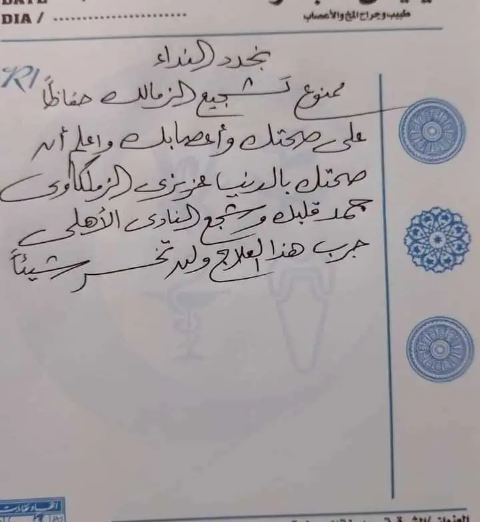 DIA / ........................
طبيب وجراح المخ والأعصاب
R/
نجدد النداء
ممنوع تشجيع الزمالك حفاظاً
على صحتك وأعصابك واعلم أن
صحتك بالدنيا عزيزى الزملكاوى
جمد قلبك وشجع النادى الأهلى
جرب هذا العلاج ولن تخسر شيئاً